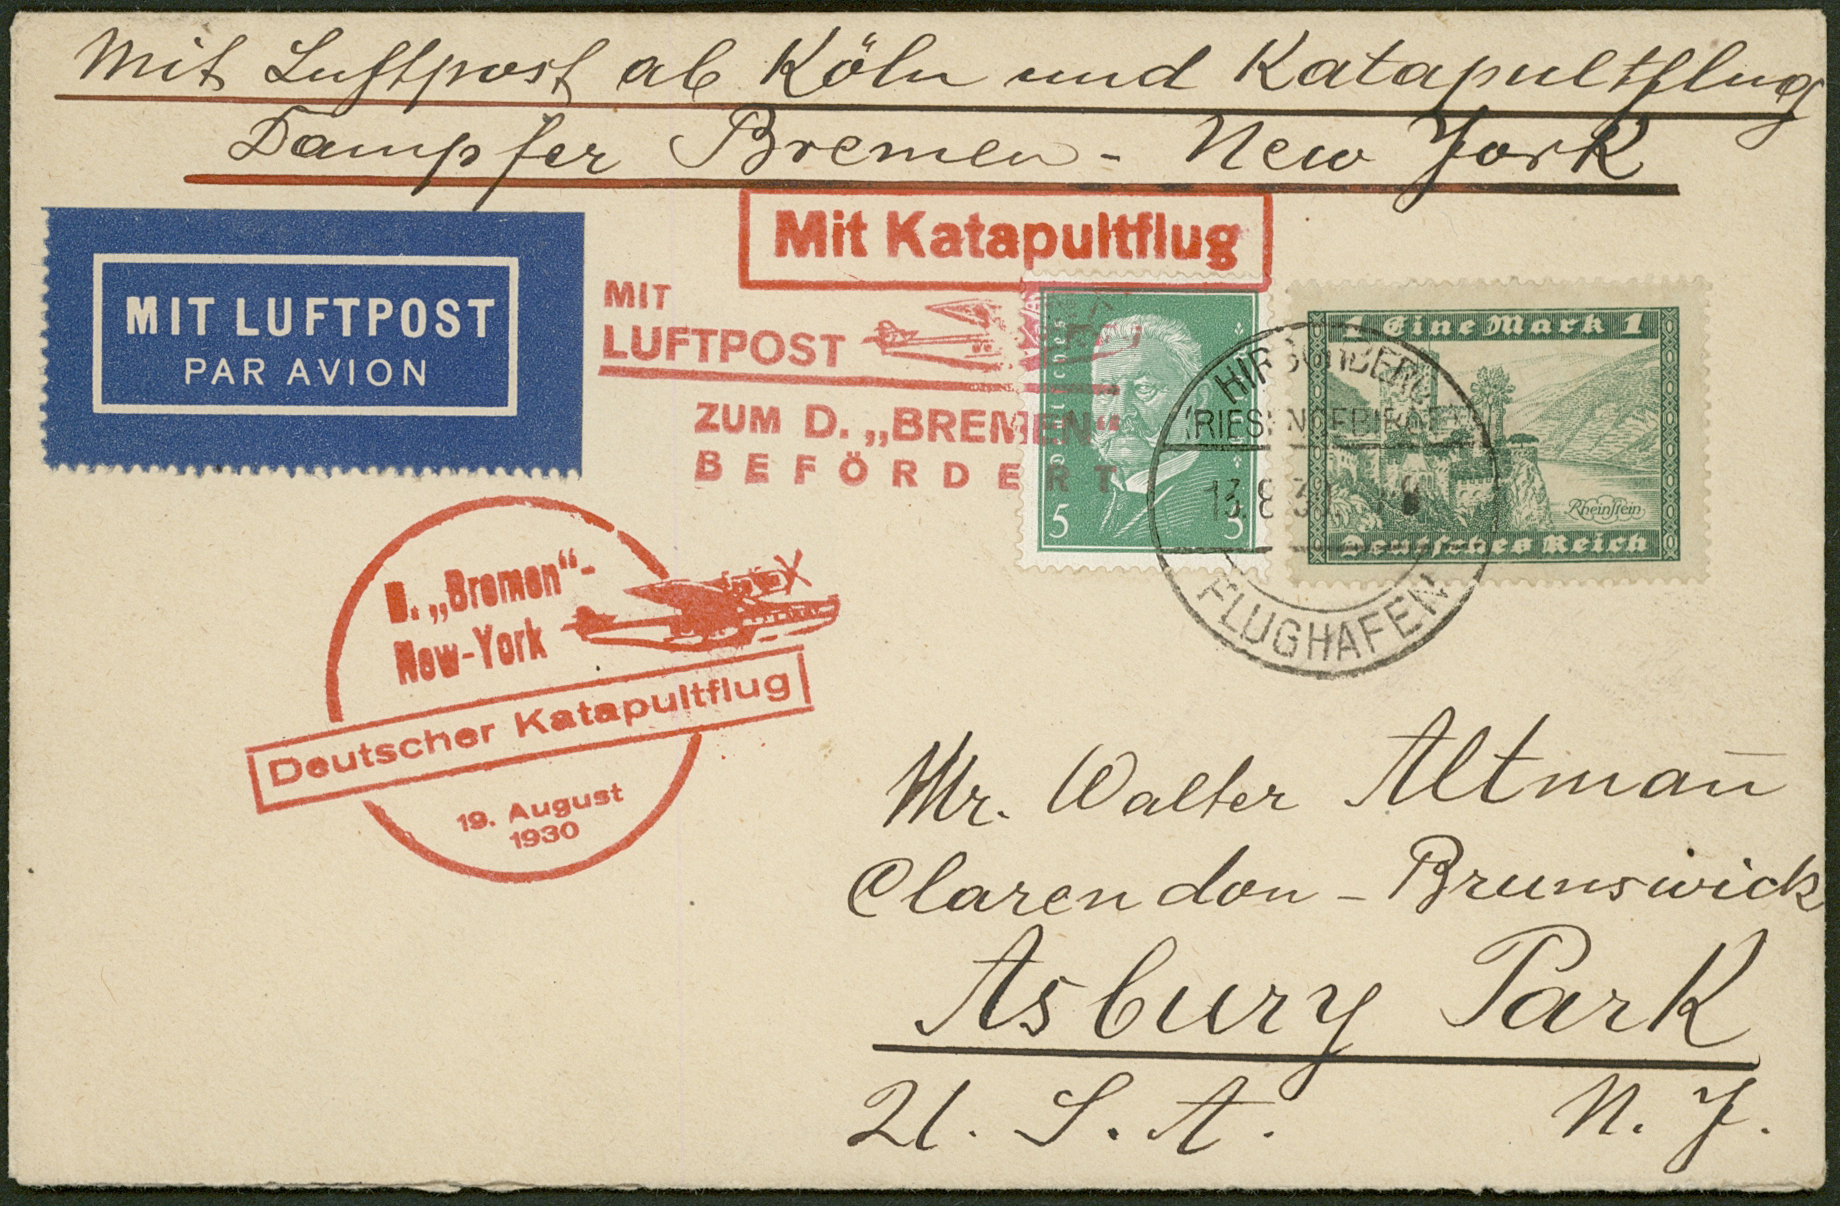 Mit Luftpost ab Köln und Katapultflug
Dampfer Bremen - New York
Mit Katapultflug
MIT LUFTPOST
PAR AVION
MIT
LUFTPOST
ZUM D. „BREMEN“
BEFÖRDERT
Deutsches
5 5
1 Eine Mark 1
Rheinstein
Deutsches Reich
HIRSCHBERG
(RIESENGEBIRGE)
13.8.30
FLUGHAFEN
D. „Bremen“-
New-York
Deutscher Katapultflug
19. August
1930
Mr. Walter Altmañ
Clarendon - Brunswick
Asbury Park
U. S. A. N. J.